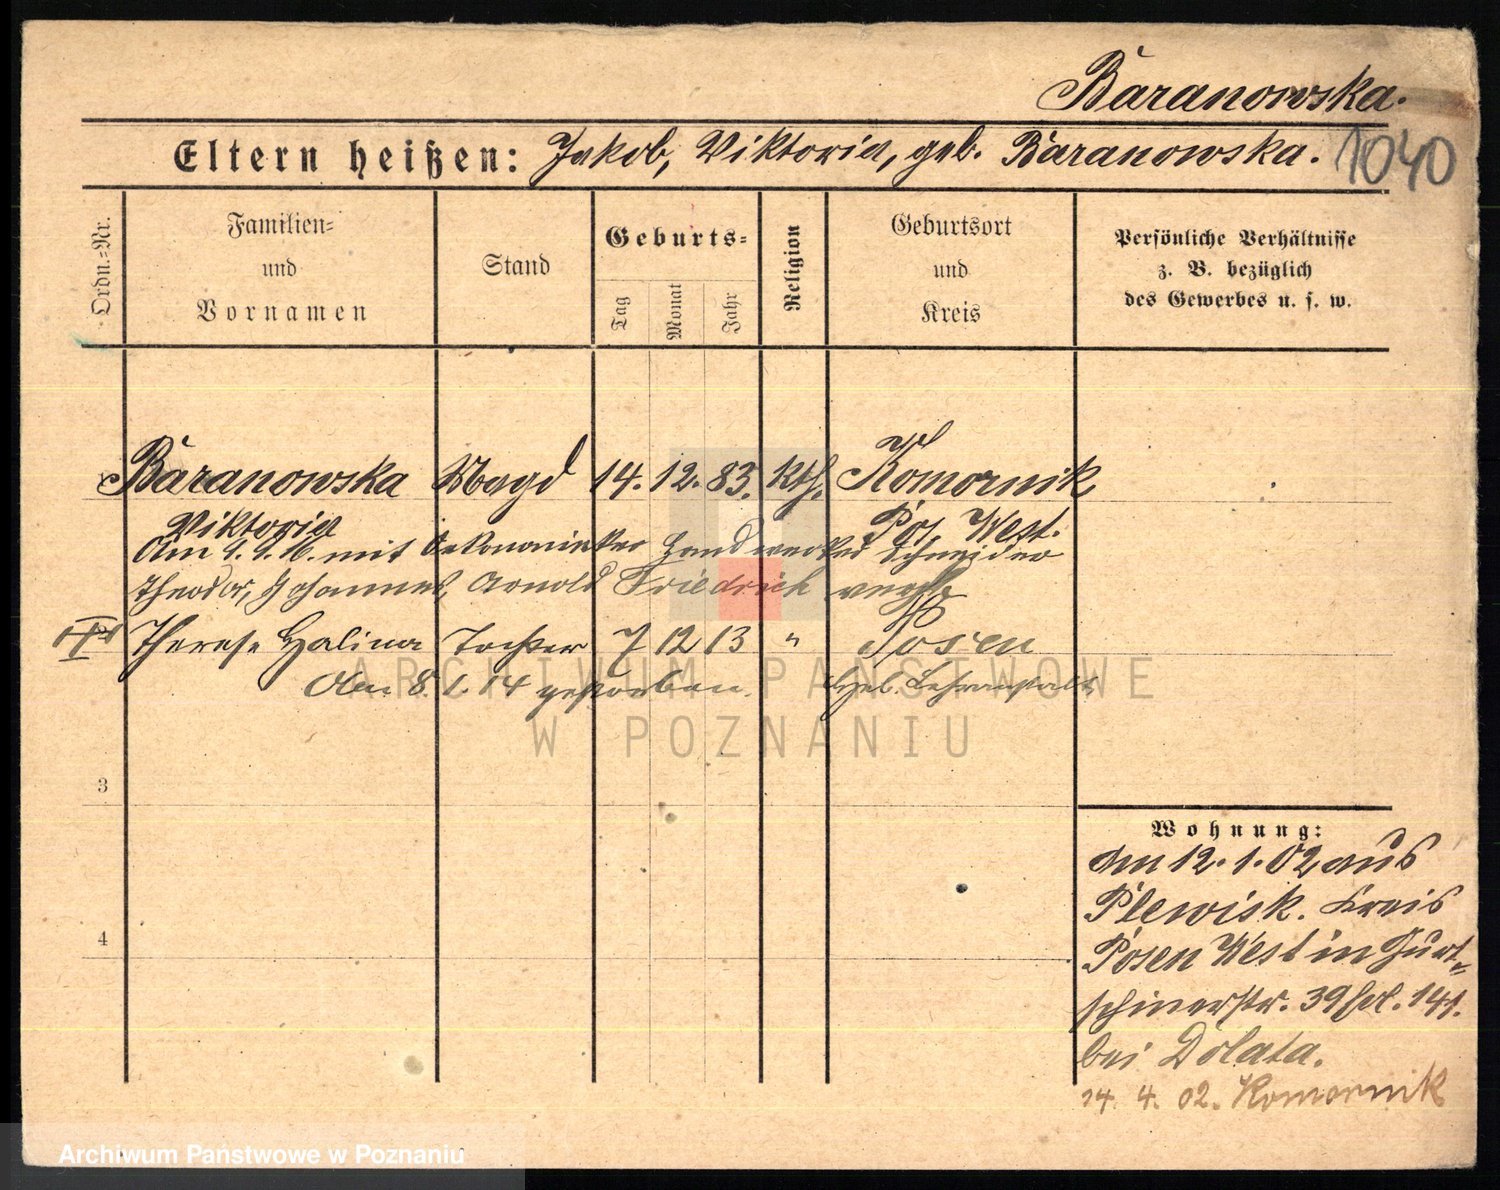 Baranowska.
Eltern heißen: Jakob, Viktoria, geb. Baranowska. 1040
Ordn.-Nr.
Familien- und Vornamen
Stand
Geburts-
Tag
Monat
Jahr
Religion
Geburtsort und Kreis
Persönliche Verhältnisse
z. B. bezüglich
des Gewerbes u. s. w.
Baranowska Magd 14. 12. 83. kth. Komornik
Viktoria Pos. West.
Am 4. 1. 16. mit Oekonomie Handwerker Schneider
Theodor, Johannes, Arnold Friedrich verh.
Therese Halina Tochter 7 12 13 " Posen
Den 8. 1. 14 gestorben. Heb. Lehranstalt
3
4
Wohnung:
Am 12. 1. 02 aus
Plewisk. Kreis
Posen West in Gurt-
schinerstr. 39 141.
bei Dolata.
14. 4. 02. Komornik
ARCHIWUM PAŃSTWOWE
W POZNANIU
Archiwum Państwowe w Poznaniu